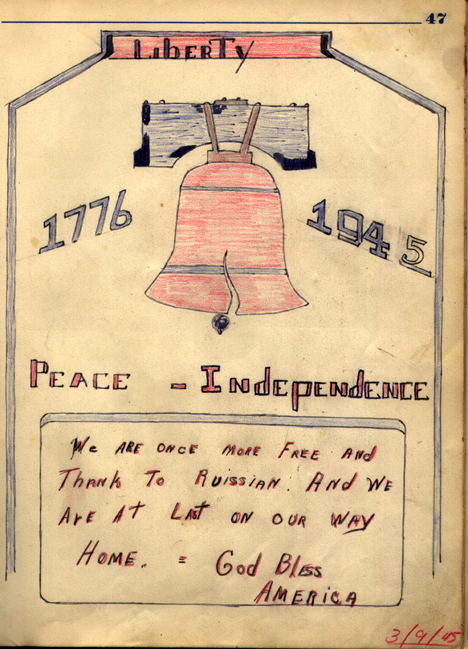 47
LIBERTY
1776
1945
PEACE - INDEPENDENCE
We ARE ONCE MORE FREE AND
THANK TO RUISSIAN. AND WE
ARE AT LAST ON OUR WAY
HOME. = God Bless
AMERICA
3/9/45